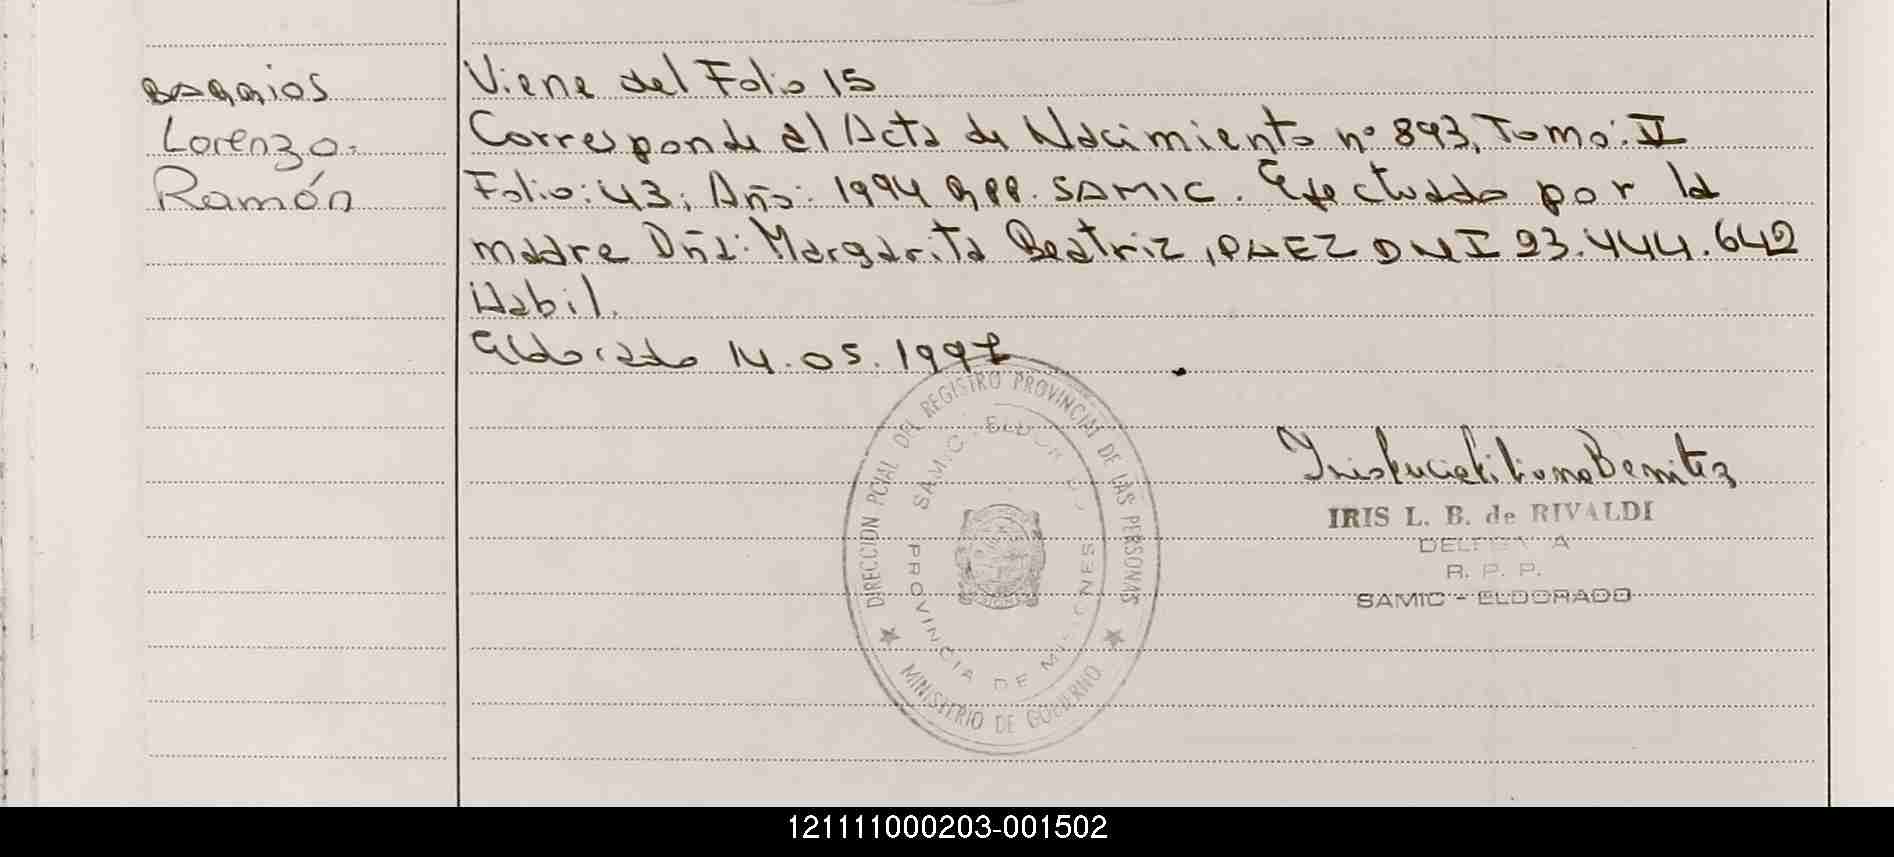 BARRIOS
Lorenzo.
Ramón
Viene del Folio 15
Corresponde al Acta de Nacimiento nº 893, Tomo: V
Folio: 43; Año: 1994 RPP. SAMIC. Efectuado por la
madre Dña: Margarita Beatriz, PAEZ DNI 23.444.642
Habil.
Eldorado 14.05.1997
DIRECCION PCIAL DEL REGISTRO PROVINCIAL DE LAS PERSONAS
SAMIC - ELDORADO
PROVINCIA DE MISIONES
MINISTERIO DE GOBIERNO
Benitez
IRIS L. B. de RIVALDI
DELEGADA
R. P. P.
SAMIC - ELDORADO
121111000203-001502